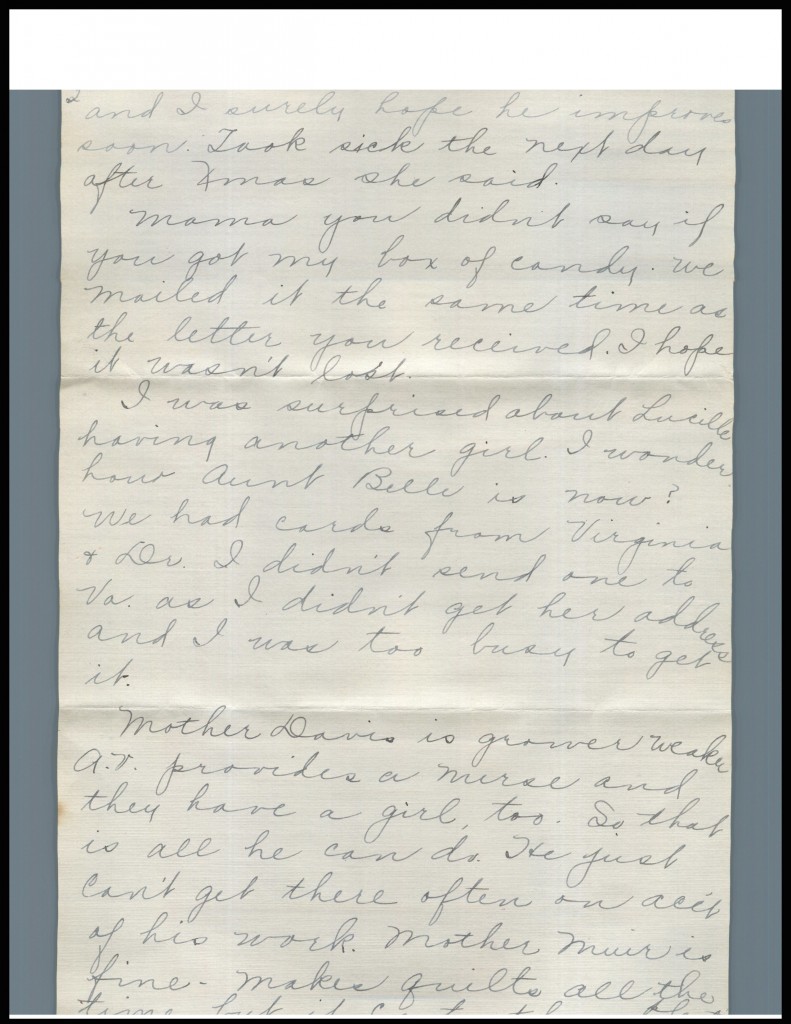 2
and I surely hope he improves
soon. Took sick the next day
after Xmas she said.
Mama you didn't say if
you got my box of candy. We
mailed it the same time as
the letter you received. I hope
it wasn't lost.
I was surprised about Lucille
having another girl. I wonder
how Aunt Belle is now?
We had cards from Virginia
+ Dr. I didn't send one to
Va. as I didn't get her address
and I was too busy to get
it.
Mother Davis is grower weaker
A.V. provides a nurse and
they have a girl, too. So that
is all he can do. He just
can't get there often on acc't
of his work. Mother Muir is
fine - makes quilts all the
time but it